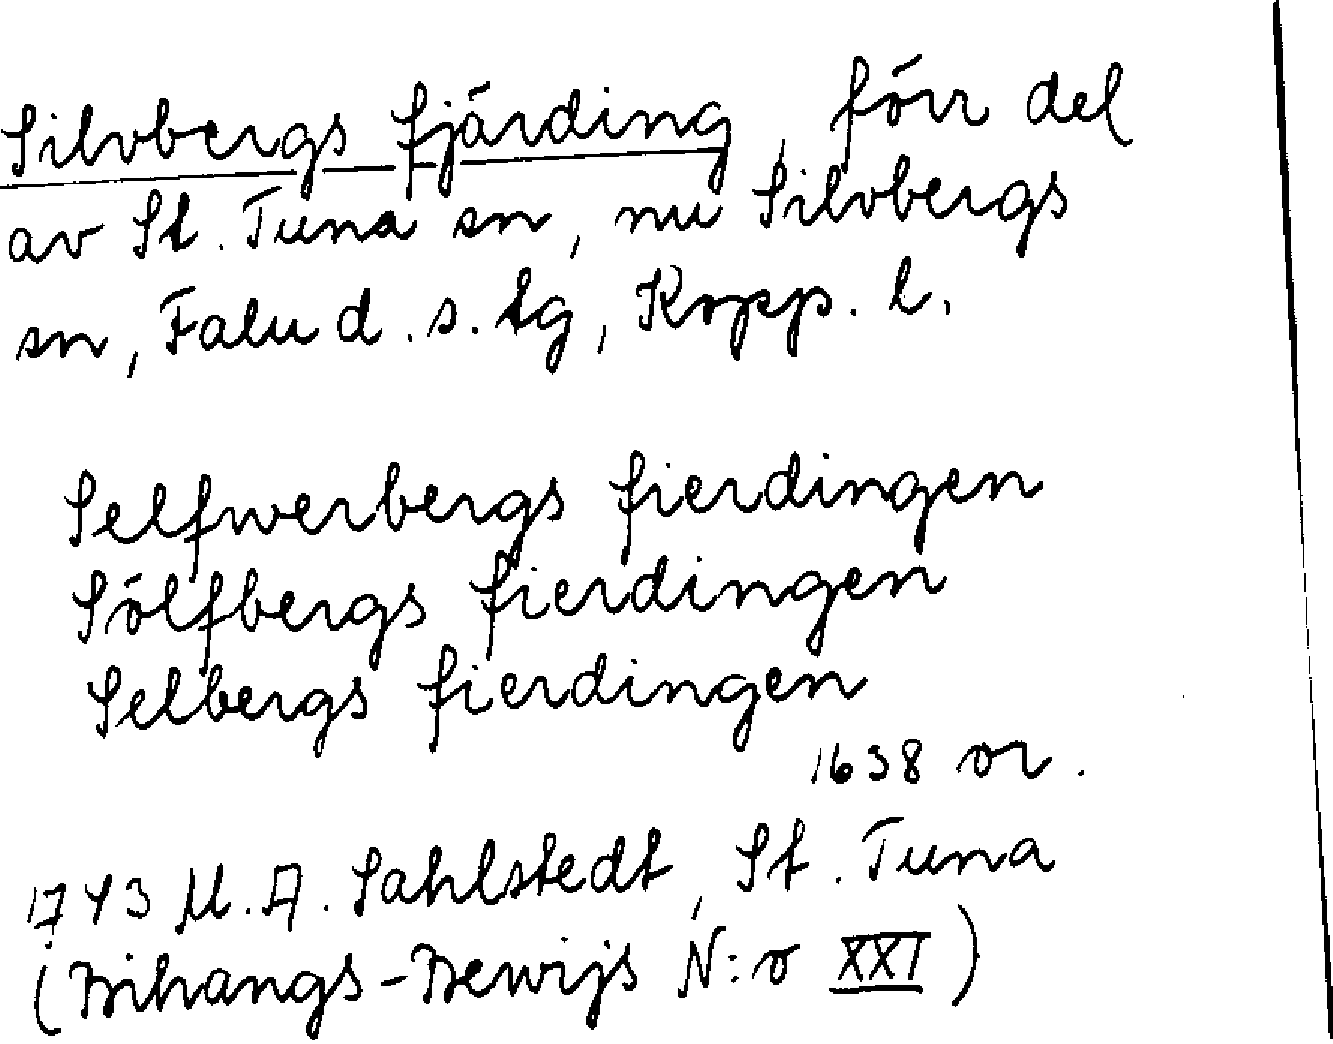 Silvbergs fjärding, förr del
av St. Tuna sn, nu Silvbergs
sn, Falu d. s. tg, Kopp. l.
Selfwerbergs fierdingen
Sölfbergs fierdingen
Selbergs fierdingen
1638 or.
1743 A. Sahlstedt, St. Tuna
(Bihangs-Bewijs N:o XXI)